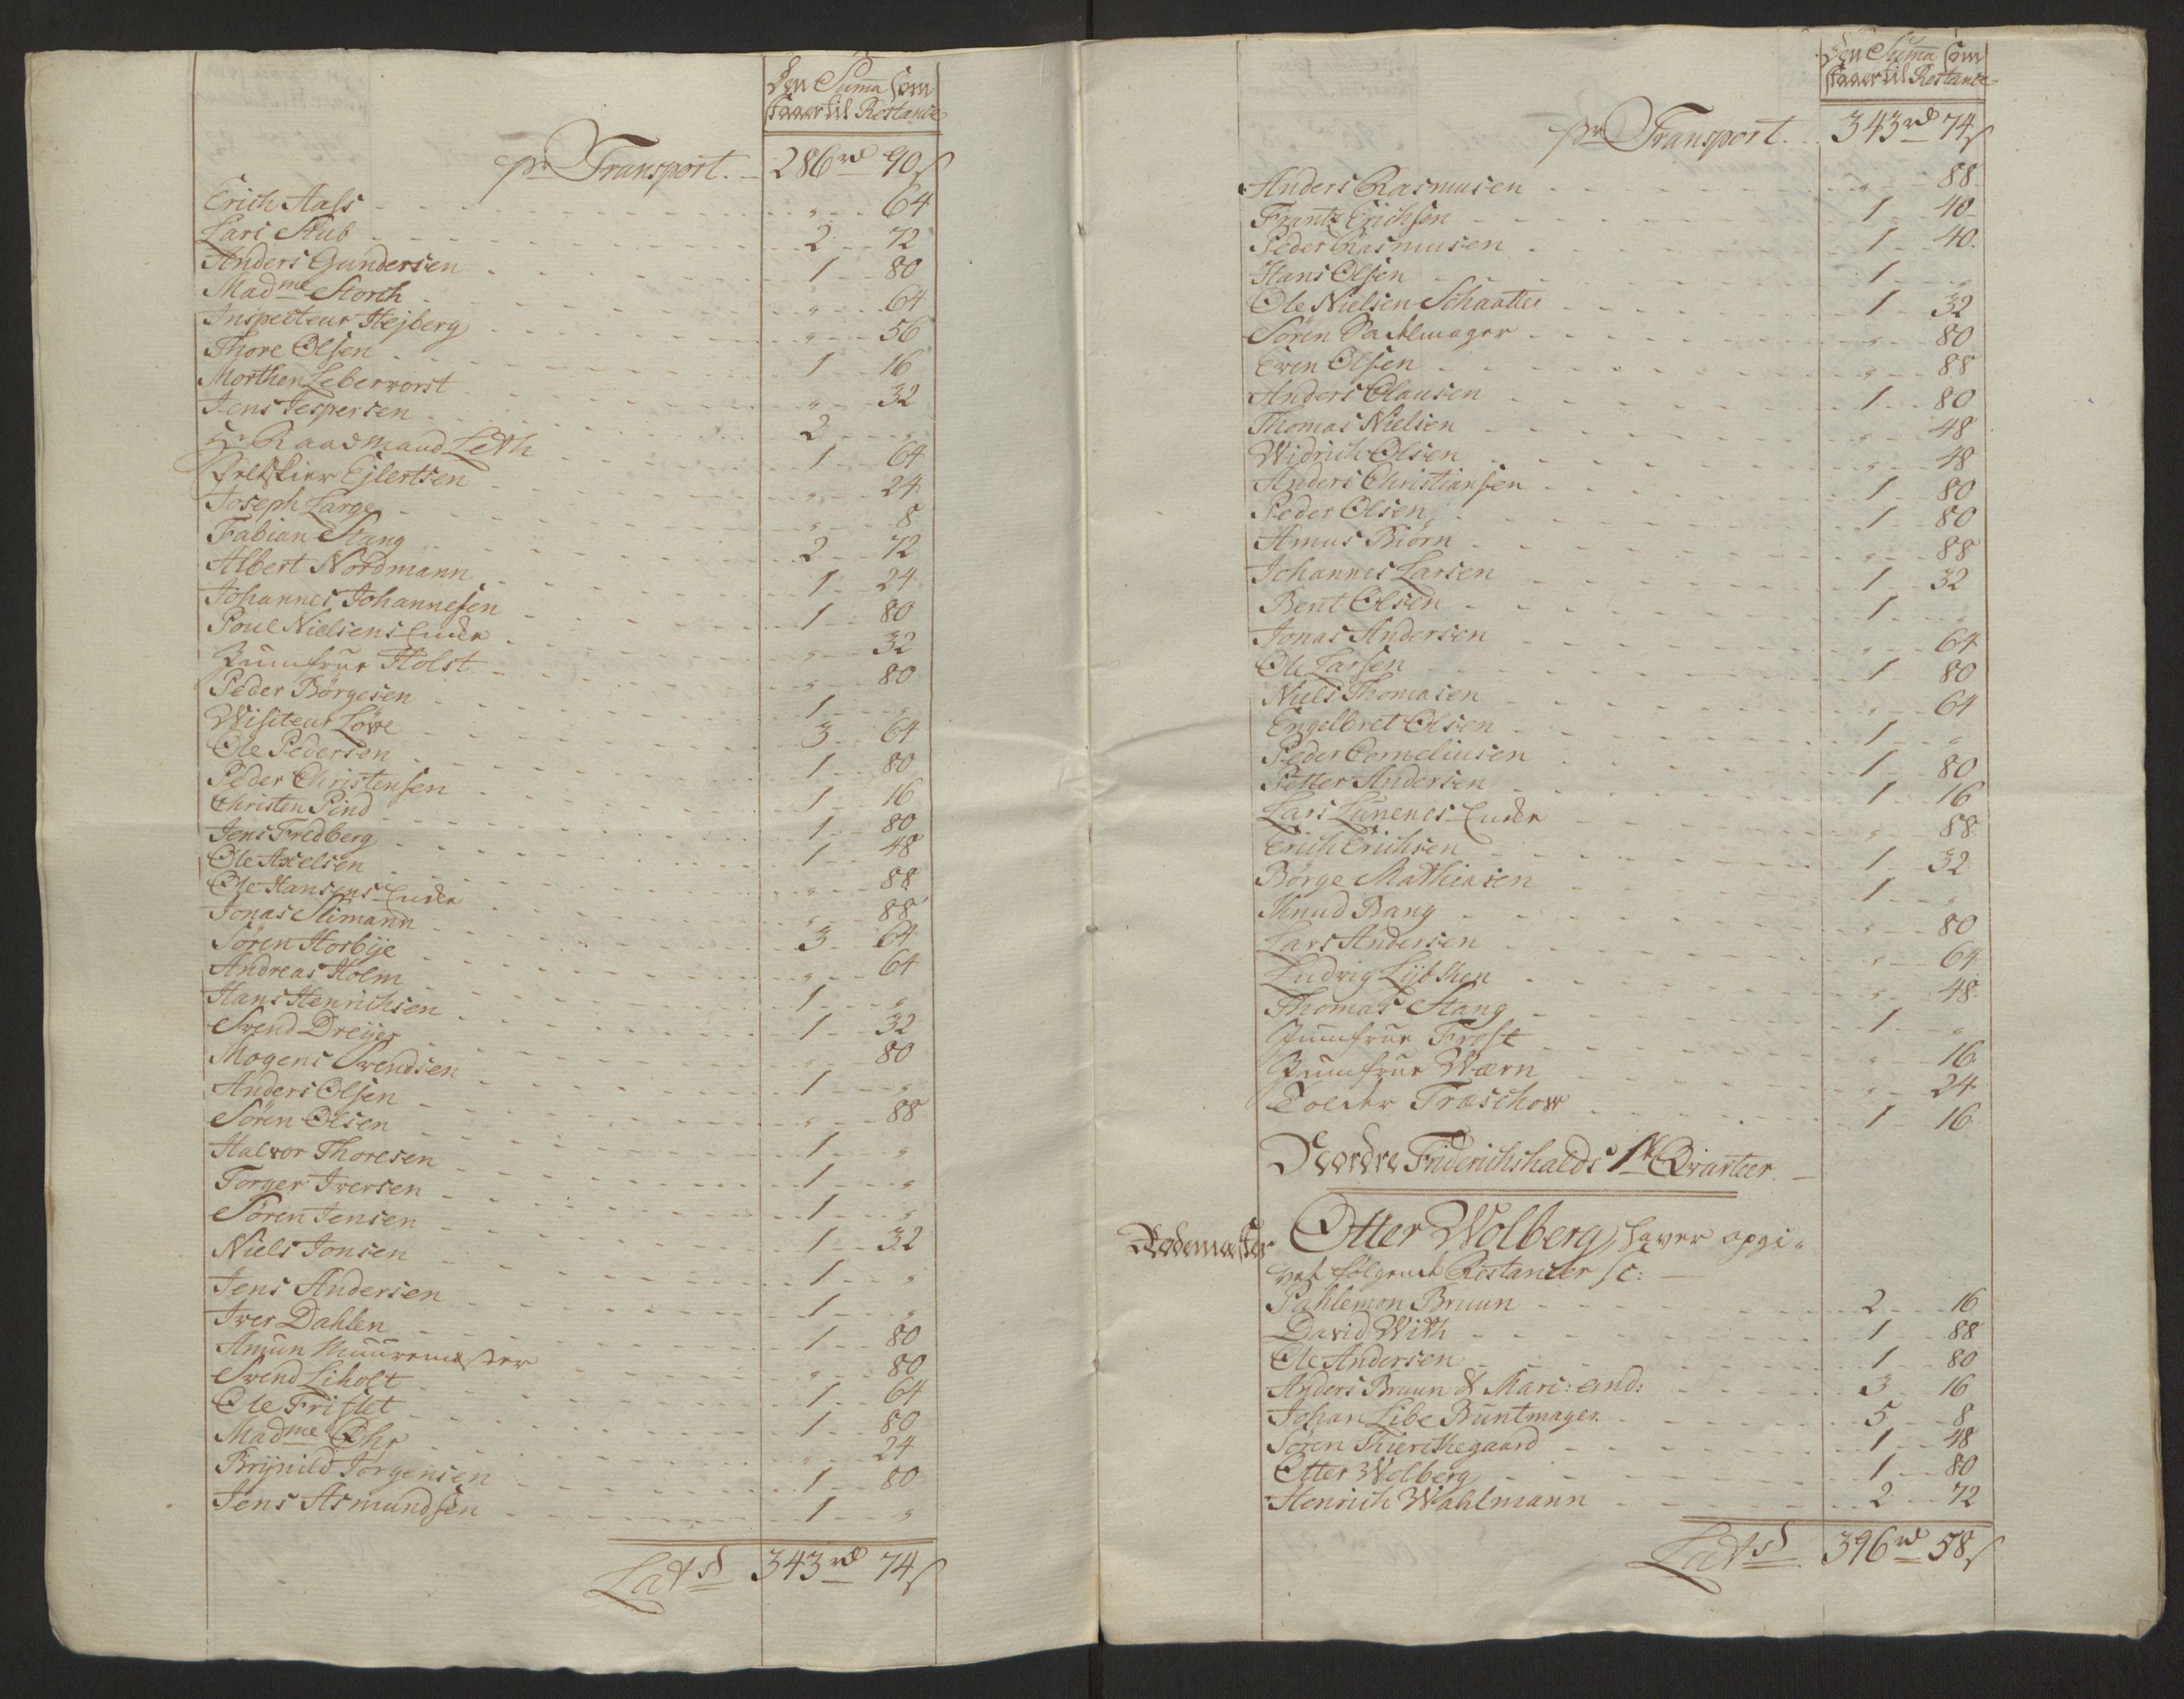 Den Suma som
staaer til Restance
pr Transport. 286 rd 90 s
Erich Aass " 64
Lars Stub 2 72
Anders Gundersen 1 80
Madme Storch " 64
Inspecteur Hejberg " 56
Thore Olsen 1 16
Morthen Leberworst " 32
Jens Jespersen 2 "
Hr Raadmand Leth 1 64
Ejlertsen " 24
Joseph Large " 8
Fabian Stang 2 72
Albert Nordmann 1 24
Johannes Johannesen 1 80
Poul Nielsens Encke " 32
Jumfrue Holst " 80
Peder Börgesen 1 "
Wisiteur Löwe 3 64
Ole Pederson 1 80
Peder Christensen 1 16
Christen Pind 1 80
Jens Fredberg 1 48
Ole Axelsen " 88
Ole Hansens Encke " 88
Jonas Slimann 3 64
Sören Hosbÿe " 64
Andreas Holm 1 "
Hans Henrichsen 1 32
Svend Dreÿer " 80
Mogens Svendsen 1 "
Anders Olsen " 88
Sören Olsen 1 "
Halvor Thoresen 1 "
Torger Iversen 1 "
Sören Jensen 1 32
Niels Jonsen 1 "
Jens Andersen 1 "
Iver Dahlen 1 80
Amun Muuremester " 80
Svend Liholt 1 64
Ole Frislet 1 80
Madme Ohr " 24
Brÿnild Jörgensen 1 80
Jens Asmundsen 1 "
Lats 343 rd 74 s
Den Suma som
staaer til Restance
pr Transport. 343 rd 74 s
Anders Rasmusen " 88
Frantz Erichsen 1 40
Peder Rasmusen 1 40
Hans Olsen 1 "
Ole Nielsen Schaatte 1 32
Sören Sadlmager " 80
Even Olsen " 88
Anders Clausen 1 80
Thomas Nielsen " 48
Widrich Olsen " 48
Anders Christiansen 1 80
Peder Olsen 1 80
Amus Biörn " 88
Johannes Larsen 1 32
Bent Olsen 1 "
Jonas Andersen " 64
Ole Larsen 1 80
Niels Thomasen " 64
Engelbret Olsen 1 "
Peder Corneliusen 1 80
Petter Andersen 1 16
Lars Lunenes Encke " 88
Erich Erichsen 1 32
Börge Mathiasen 1 "
Knud Bang " 80
Lars Andersen " 64
Ludvig Lÿbken " 48
Thomas Stang 1 "
Jumfrue Frost " 16
Jumfrue Wærn " 24
Tolder Træschow 1 16
Nordre Friderichshalds 1te Qvarteer.
Rodemester Otter Wolberg, haver opgi-
vet følgende Restancer sc:
Pahlemon Bruun 2 16
David With 1 88
Ole Andersen 1 80
Anders Bruun & Mari: and: 3 16
Johan Libe Buntmager 5 8
Sören Kierckegaard 1 48
Otter Wolberg 1 80
Henrich Wahlmann 2 72
Lats 396 rd 58 s